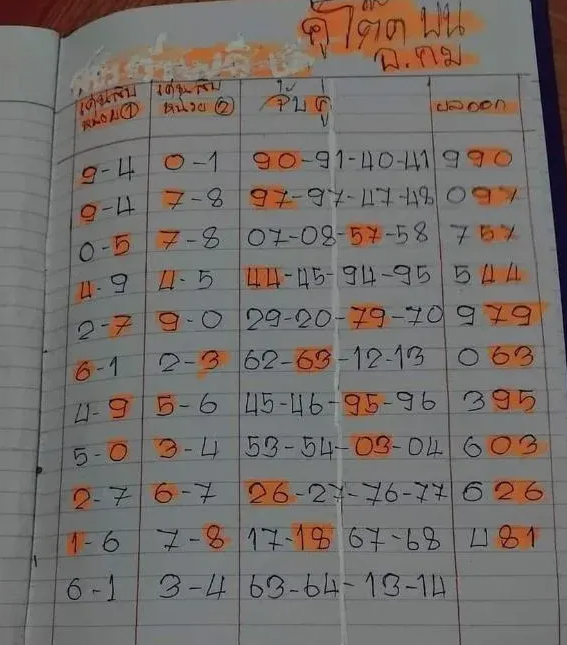 คู่โต๊ด บน
อ.กม
เด่นสิบ หน่วย ① เด่นสิบ หน่วย ② จับคู่ ผลออก
9-4 0-1 90-91-40-41 990
9-4 7-8 97-97-47-48 097
0-5 7-8 07-08-57-58 757
4-9 4-5 44-45-94-95 544
2-7 9-0 29-20-79-70 979
6-1 2-3 62-63-12-13 063
4-9 5-6 45-46-95-96 395
5-0 3-4 53-54-03-04 603
2-7 6-7 26-27-76-77 626
1-6 7-8 17-18 67-68 481
6-1 3-4 63-64-13-14